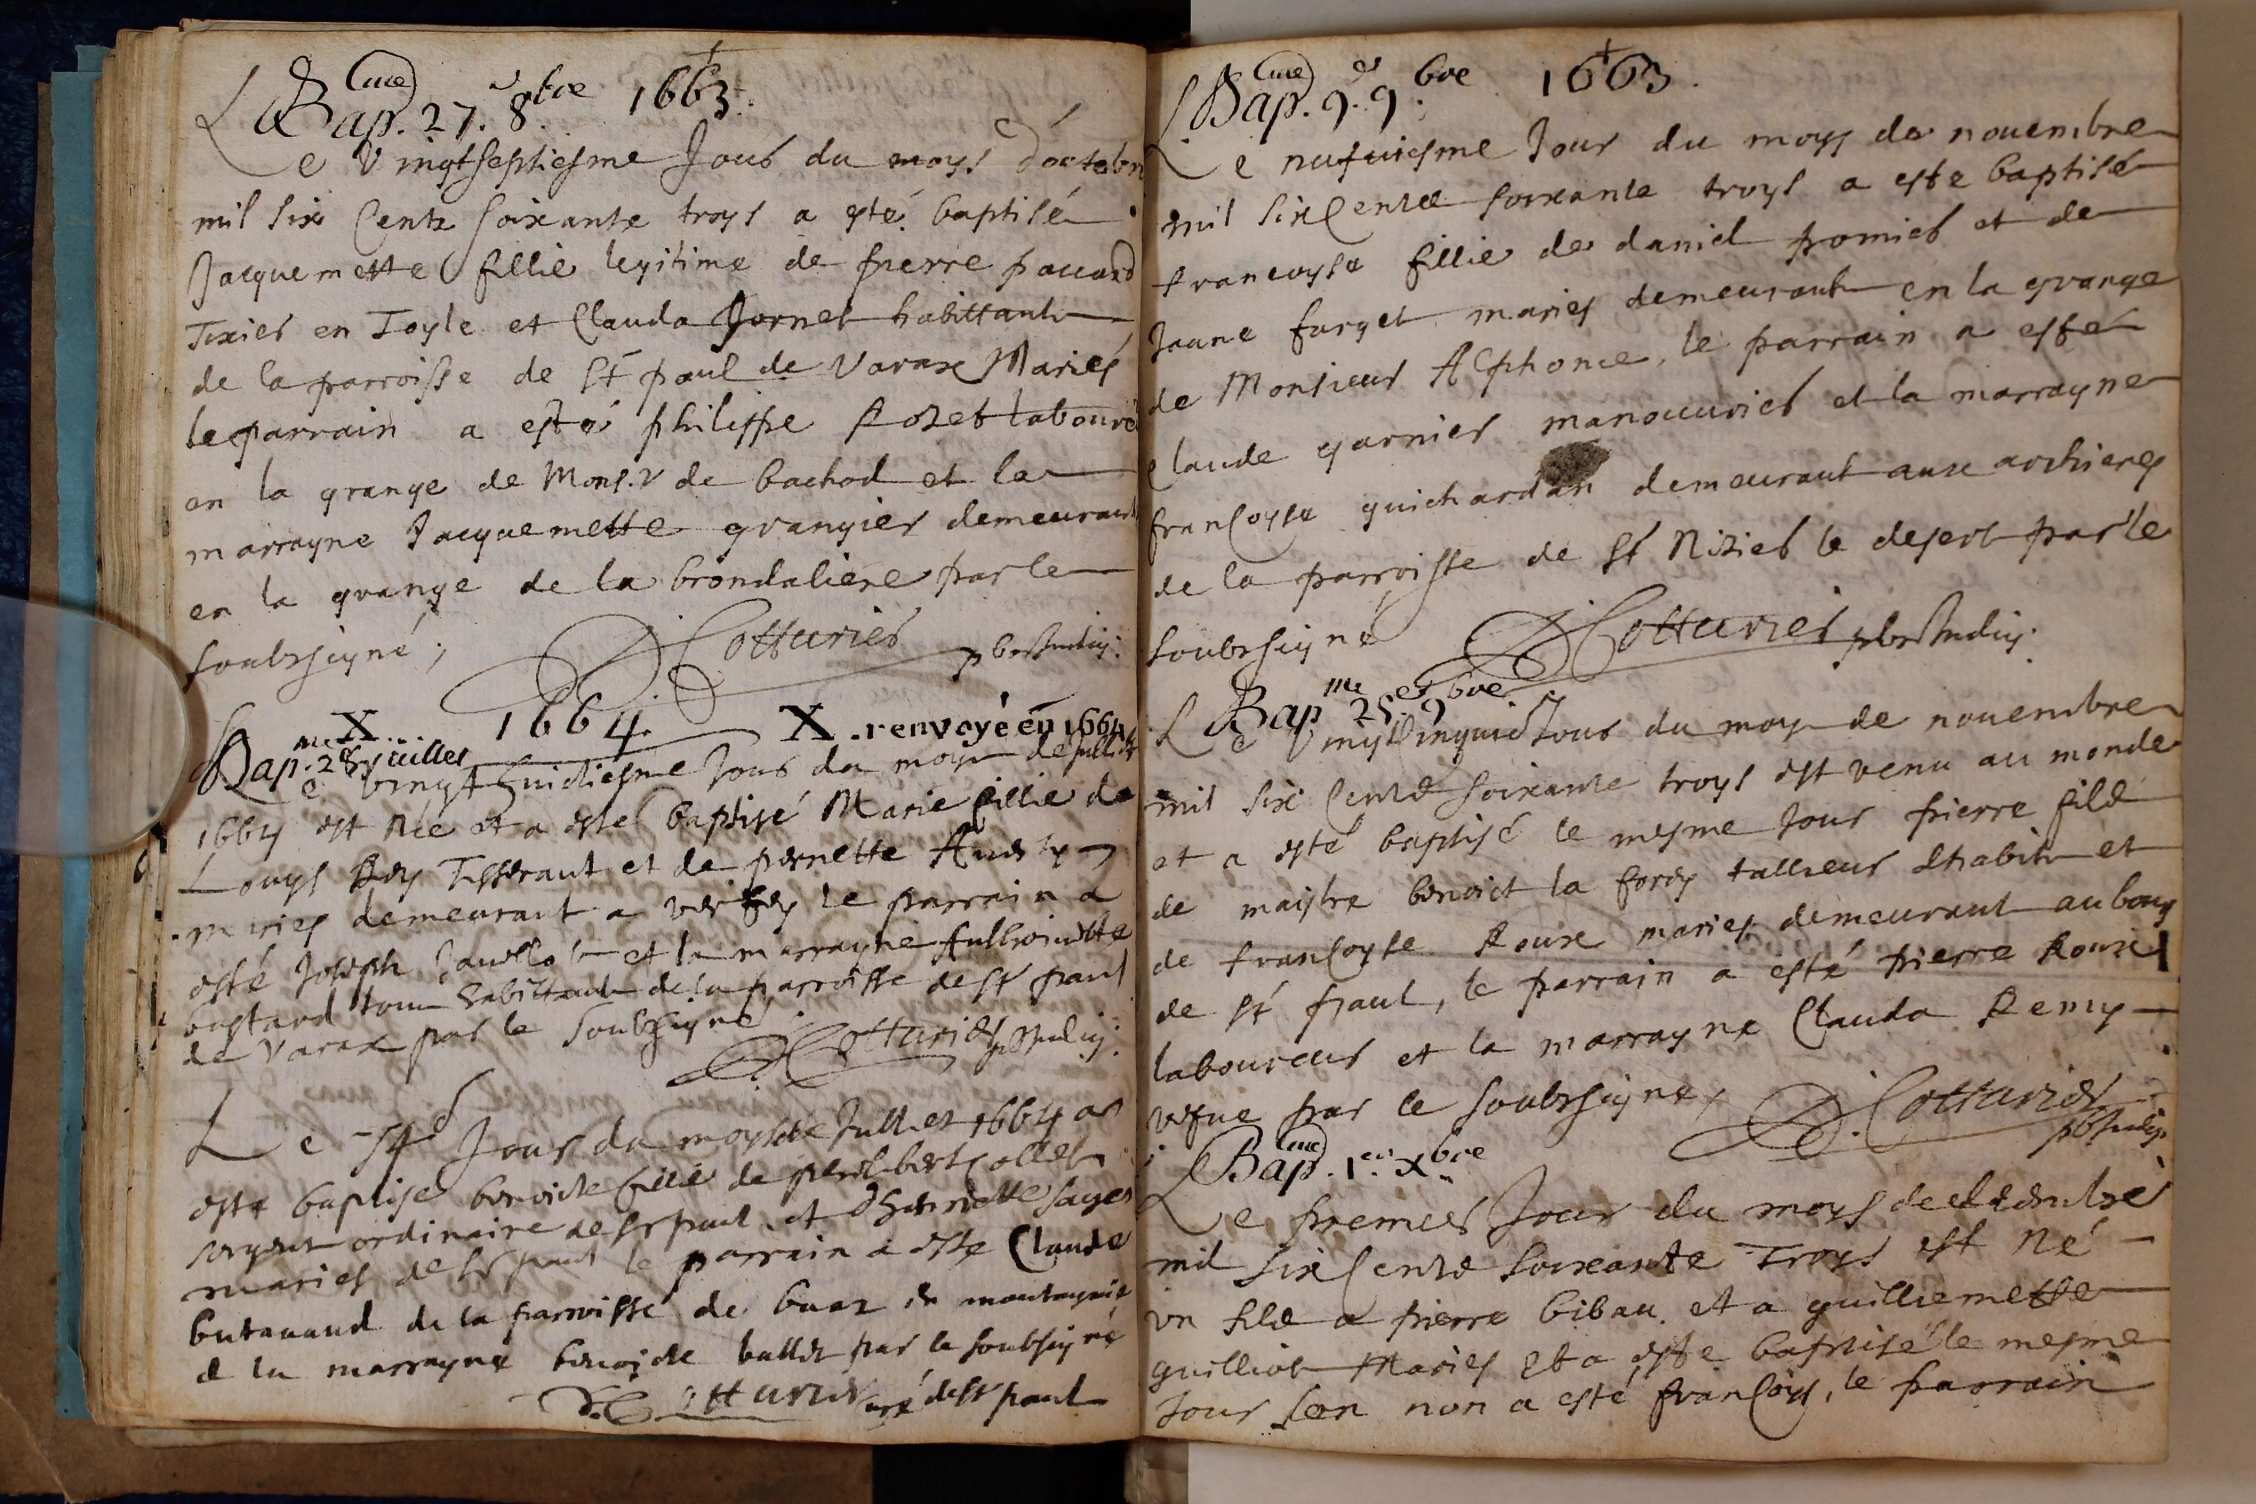 Bap.me 27. 8.bre 1663.
Le vingtseptiesme Jour du moys d'octobre
mil six Centz soixante troys a esté baptisé
Jacquemette fillie legitime de pierre paccard
Tixier en Toyle et Clauda Jornet habittantz
de la parroisse de St paul de Varax Mariés
le parrain a esté philippe Rozet laboure
en la grange de Mons.r de bachod et la
marrayne Jacquemette grangier demeurant
en la grange de la brondaliere par le
soubzsigné;
D Cotturier pbr Indig:
X 1664. X .renvoyé en 1664
Bap.me 28 juillet
Le vingt huictiesme Jour du moys de Jullet
1664 est née et a esté baptisé Marie fillie de
Louys Rey Tisserant et de pernette
maries demeurant a le parrain a
esté Joseph et la marrayne
bastard tous habittantz de la parroisse de St paul
de Varax par le soubzsigné
D Cotturier pbr Indig:
Le Jour du moys de Jullet 1664 a
esté baptise benoicte fillie de philibert Collet
sergent ordinaire de St paul et
maries de St paul le parrain a este Claude
butavand de la parroisse de buaz en montagnie
et la marrayne benoicte ballet par le soubsigné
D. Cotturier curé de St paul
Bap.me 9. 9.bre 1663.
Le nufviesme Jour du moys de novembre
mil six Centz soixante troys a este baptisé
francoyse fillie de daniel pomier et de
Jeane farget maries demeurantz en la grange
de Monsieur Alphonce, le parrain a esté
Claude garnier manoeuvrier et la marrayne
françoyse guichardan demeurant aux archieres
de la parroisse de St Nizier le desert par le
soubzsigné
D Cotturier pbr Indig:
Bap.me 25. 9.bre
Le vingt Cinquie Jour du moys de novembre
mil six Centz soixante troys est venu au monde
et a esté baptisé le mesme Jour pierre filz
de maistre benoict la forey tallieur d'habitz et
de françoyse Roux maries demeurant au bourg
de St paul, le parrain a esté pierre Roux
laboureur et la marrayne Clauda Remy
vefue par le soubzsigne,
D. Cotturier pbr Indig:
Bap.me 1.er X.bre
Le premier Jour du moys de decembre
mil six Centz soixante Troys est Né
un filz a pierre biban et a guillemette
guilliot Maries et a este baptisé le mesme
Jour son non a esté françoys, le parrain